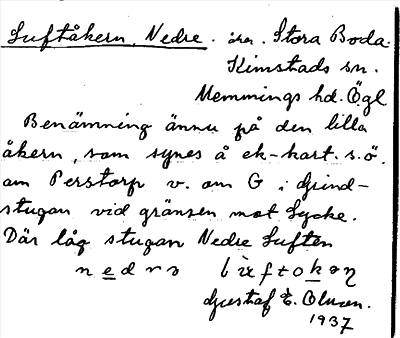 Luftåkern, Nedre. åer. Stora Boda.
Kimstads sn.
Memmings hd. Ögl
Benämning ännu på den lilla
åkern, som synes å ek-kart. s.ö.
om Perstorp v. om G i Grind-
stugan vid gränsen mot Lycke.
Där låg stugan Nedre Luften
Gustaf E. Olsson.
1937